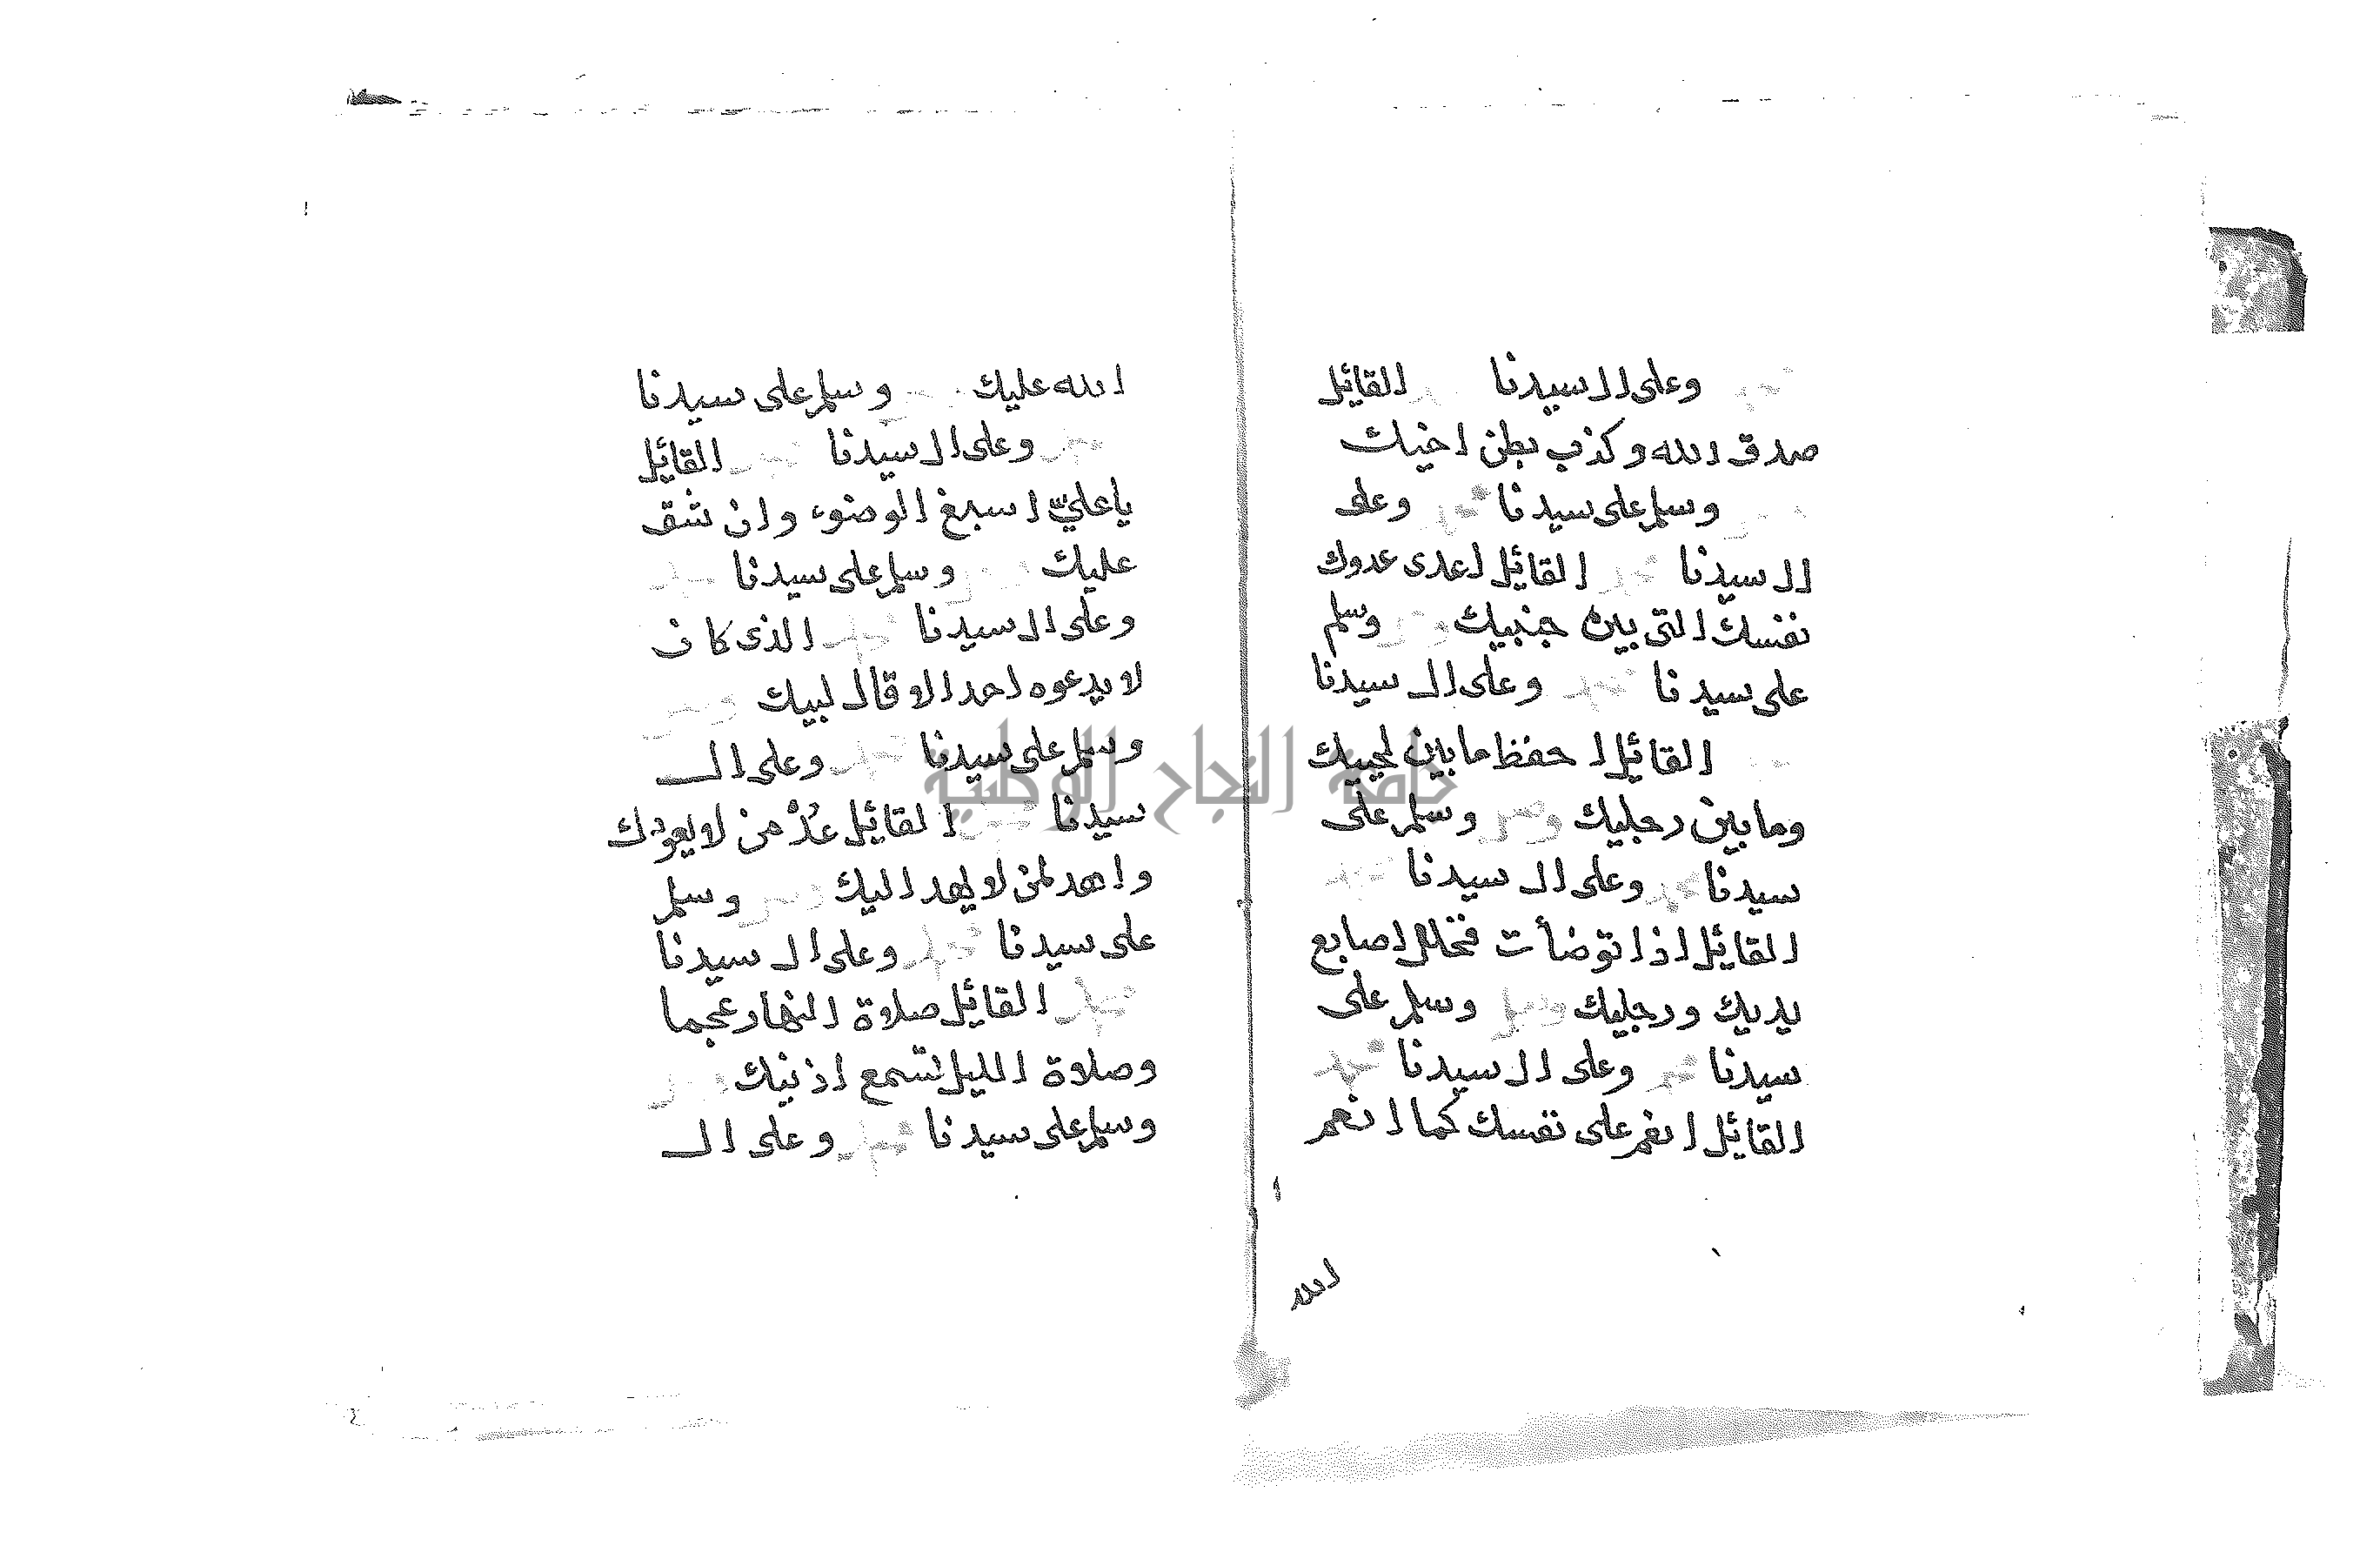 وعلى ال سيدنا القائل
صدق الله وكذب بطن اخيك
وسلم على سيدنا محمد وعلى
ال سيدنا محمد القائل اعدى عدوك
نفسك التى بين جنبيك وسلم
على سيدنا محمد وعلى ال سيدنا
القائل احفظ ما بين لحييك
وما بين رجليك وصل وسلم على
سيدنا محمد وعلى ال سيدنا محمد
القائل اذا توضأت فخلل اصابع
يديك ورجليك وصل وسلم على
سيدنا محمد وعلى ال سيدنا محمد
القائل انعم على نفسك كما انعم
الله
الله عليك وسلم على سيدنا
محمد وعلى ال سيدنا محمد القائل
يا علىّ اسبغ الوضوء وان شق
عليك وسلم على سيدنا محمد
وعلى ال سيدنا محمد الذى كان
لا يدعوه احد الا قال لبيك
وسلم على سيدنا محمد وعلى ال
سيدنا محمد القائل عُدْ من لا يعودك
واهد لمن لا يهد اليك وسلم
على سيدنا محمد وعلى ال سيدنا
محمد القائل صلاة النهار عجما
وصلاة الليل تسمع اذنيك
وسلم على سيدنا محمد وعلى ال
جامعة النجاح الوطنية